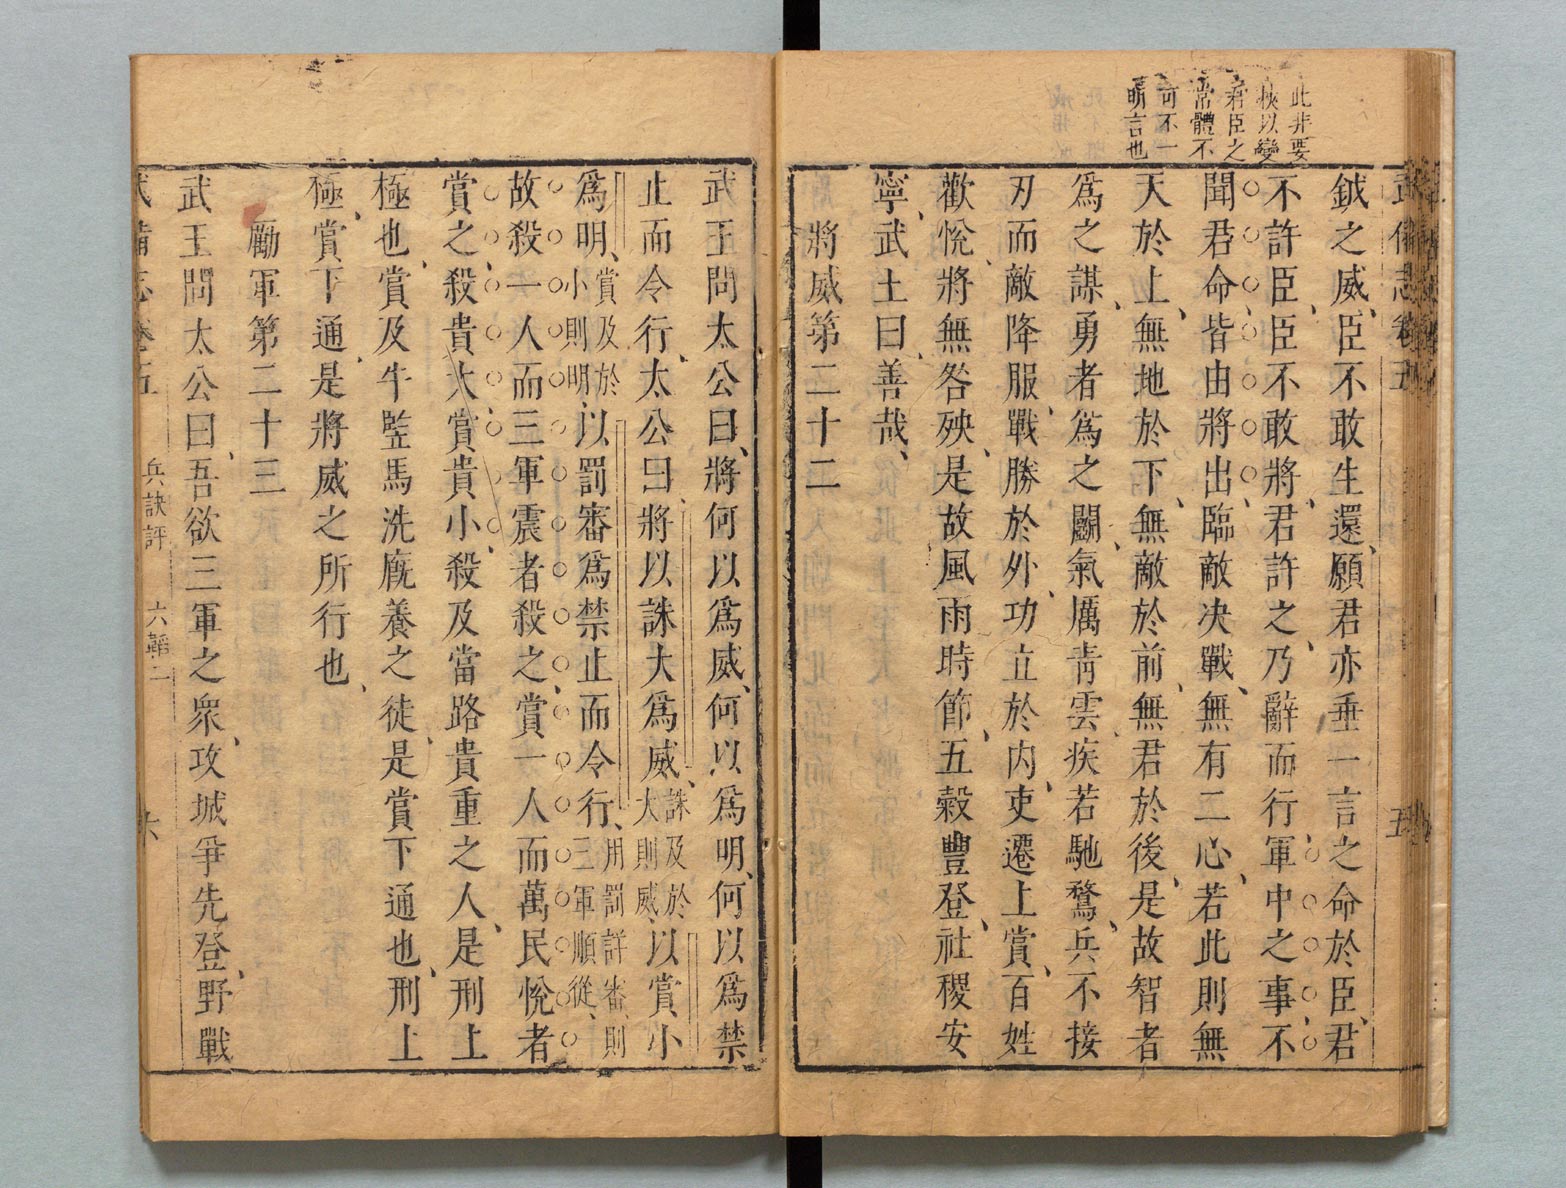 此非要
挾以變
君臣之
常體不
可不一
明言也
武備志卷五
五
鉞之威、臣不敢生還、願君亦垂一言之命於臣、君
不許臣、臣不敢將、君許之、乃辭而行、軍中之事、不
聞君命、皆由將出、臨敵决戰、無有二心、若此則無
天於上、無地於下、無敵於前、無君於後、是故智者
爲之謀、勇者爲之鬬、氣厲青雲、疾若馳鶩、兵不接
刃而敵降服、戰勝於外、功立於内、吏遷上賞、百姓
歡悅、將無咎殃、是故風雨時節、五穀豐登、社稷安
寧、武王曰、善哉、
將威第二十二
武王問太公曰、將何以爲威、何以爲明、何以爲禁
止而令行、太公曰、將以誅大爲威、誅及於大則威、以賞小
爲明、賞及於小則明、以罰審爲禁止而令行、用罰詳審、則三軍順從、
故殺一人而三軍震者殺之、賞一人而萬民悅者
賞之、殺貴大、賞貴小、殺及當路貴重之人、是刑上
極也、賞及牛豎馬洗廐養之徒、是賞下通也、刑上
極、賞下通、是將威之所行也、
勵軍第二十三
武王問太公曰、吾欲三軍之衆、攻城爭先登、野戰
武備志卷五 兵訣評 六韜二 六